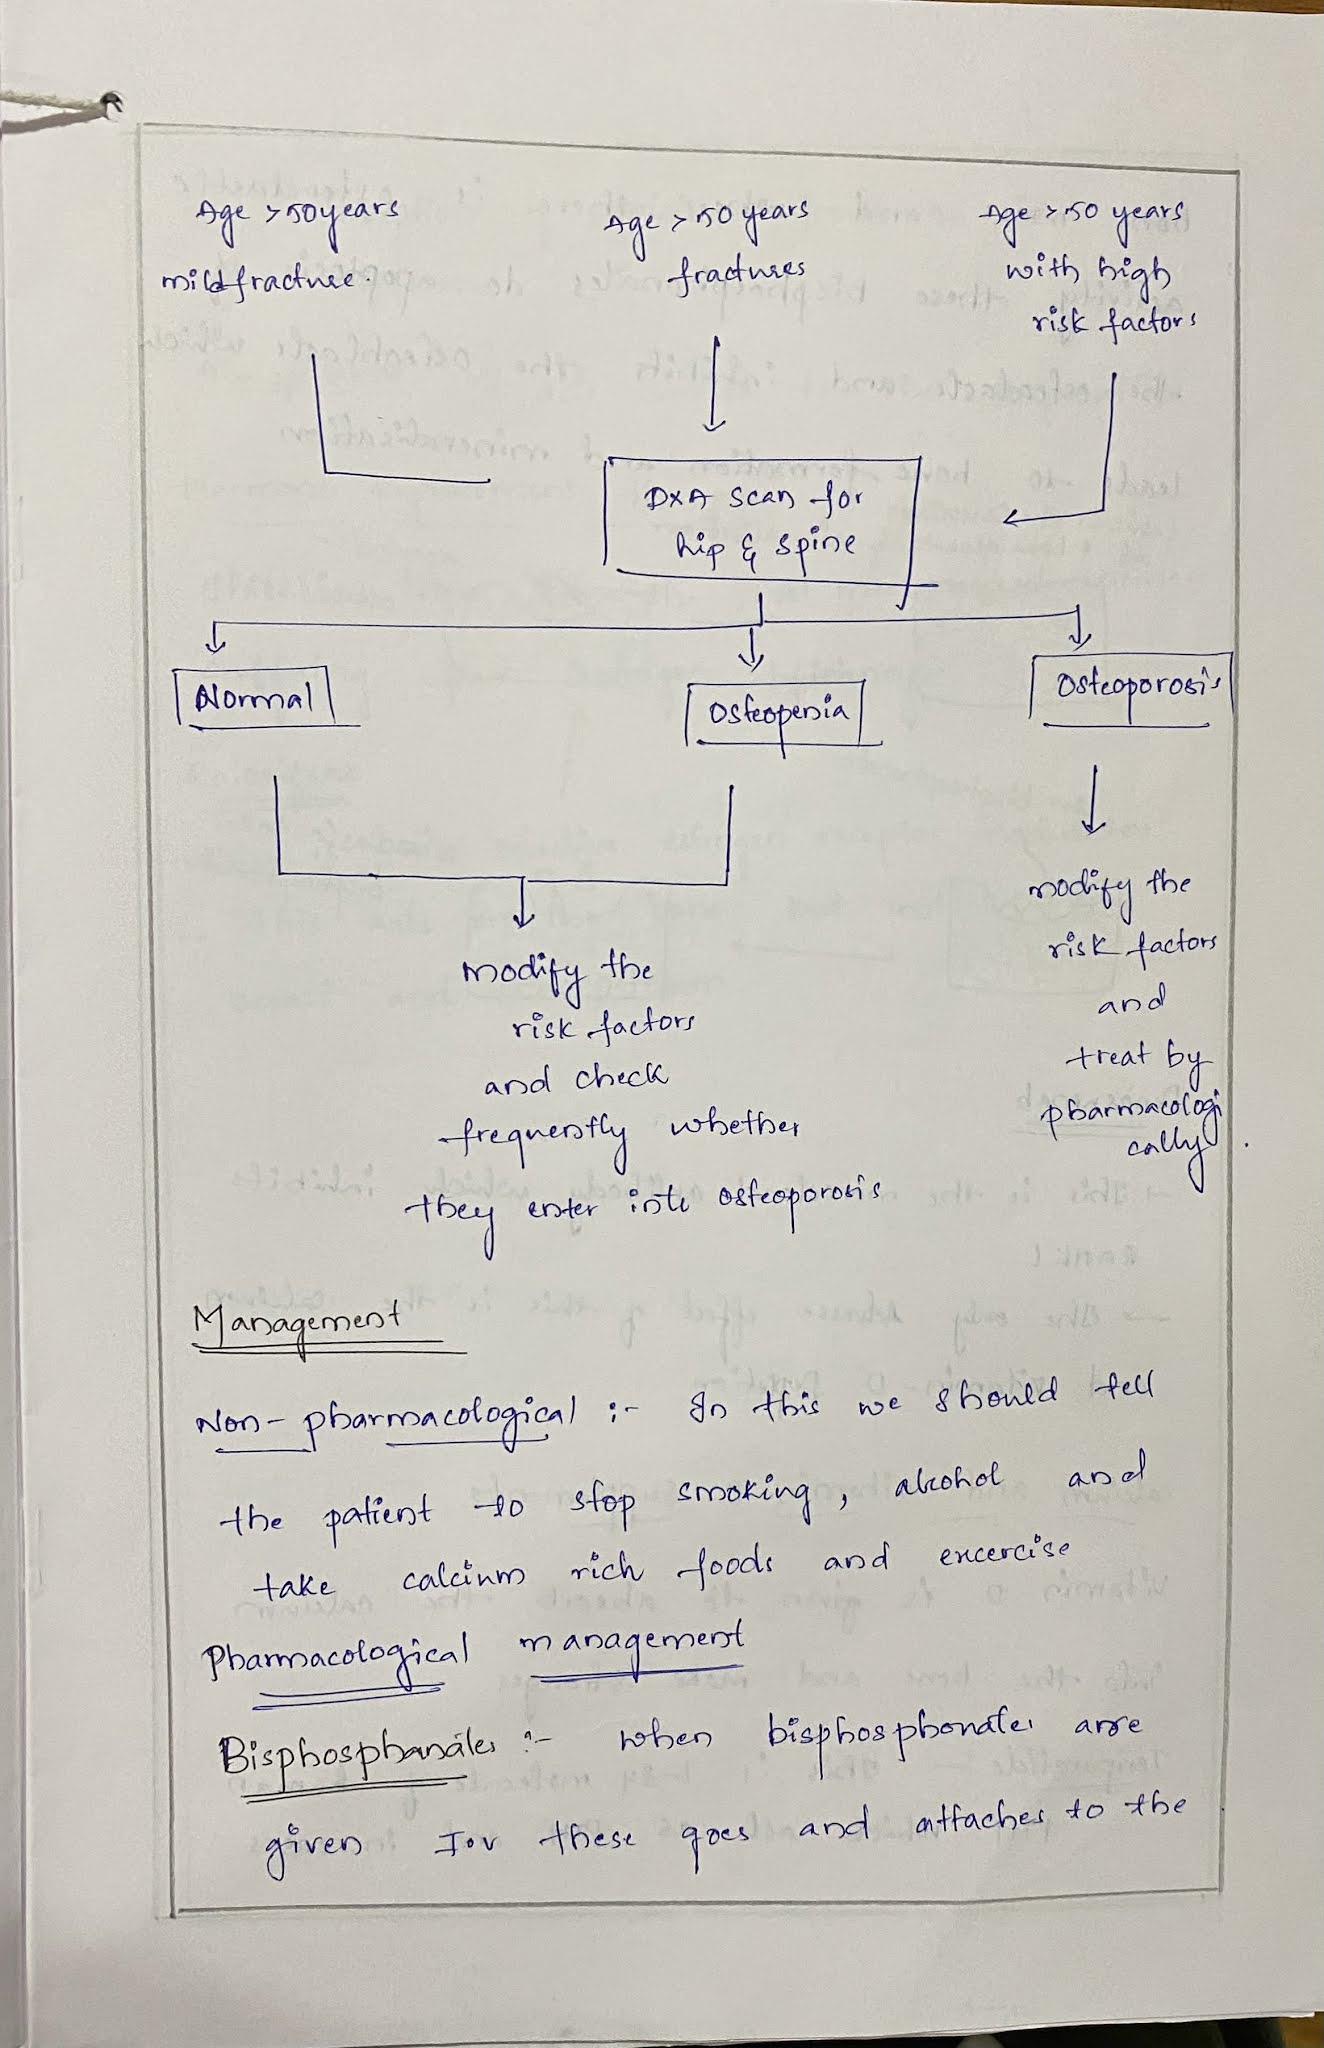 Age > 50 years
mild fracture.
Age > 50 years
fractures
Age > 50 years
with high
risk factors
DXA scan for
hip & spine
Normal
Osteopenia
Osteoporosis
modify the
risk factors
and check
frequently whether
they enter into osteoporosis
modify the
risk factors
and
treat by
pharmacologi
cally.
Management
Non-pharmacological :- In this we should tell
the patient to stop smoking, alcohol and
take calcium rich foods and excercise
Pharmacological management
Bisphosphanates :- when bisphosphonates are
given these goes and attaches to the